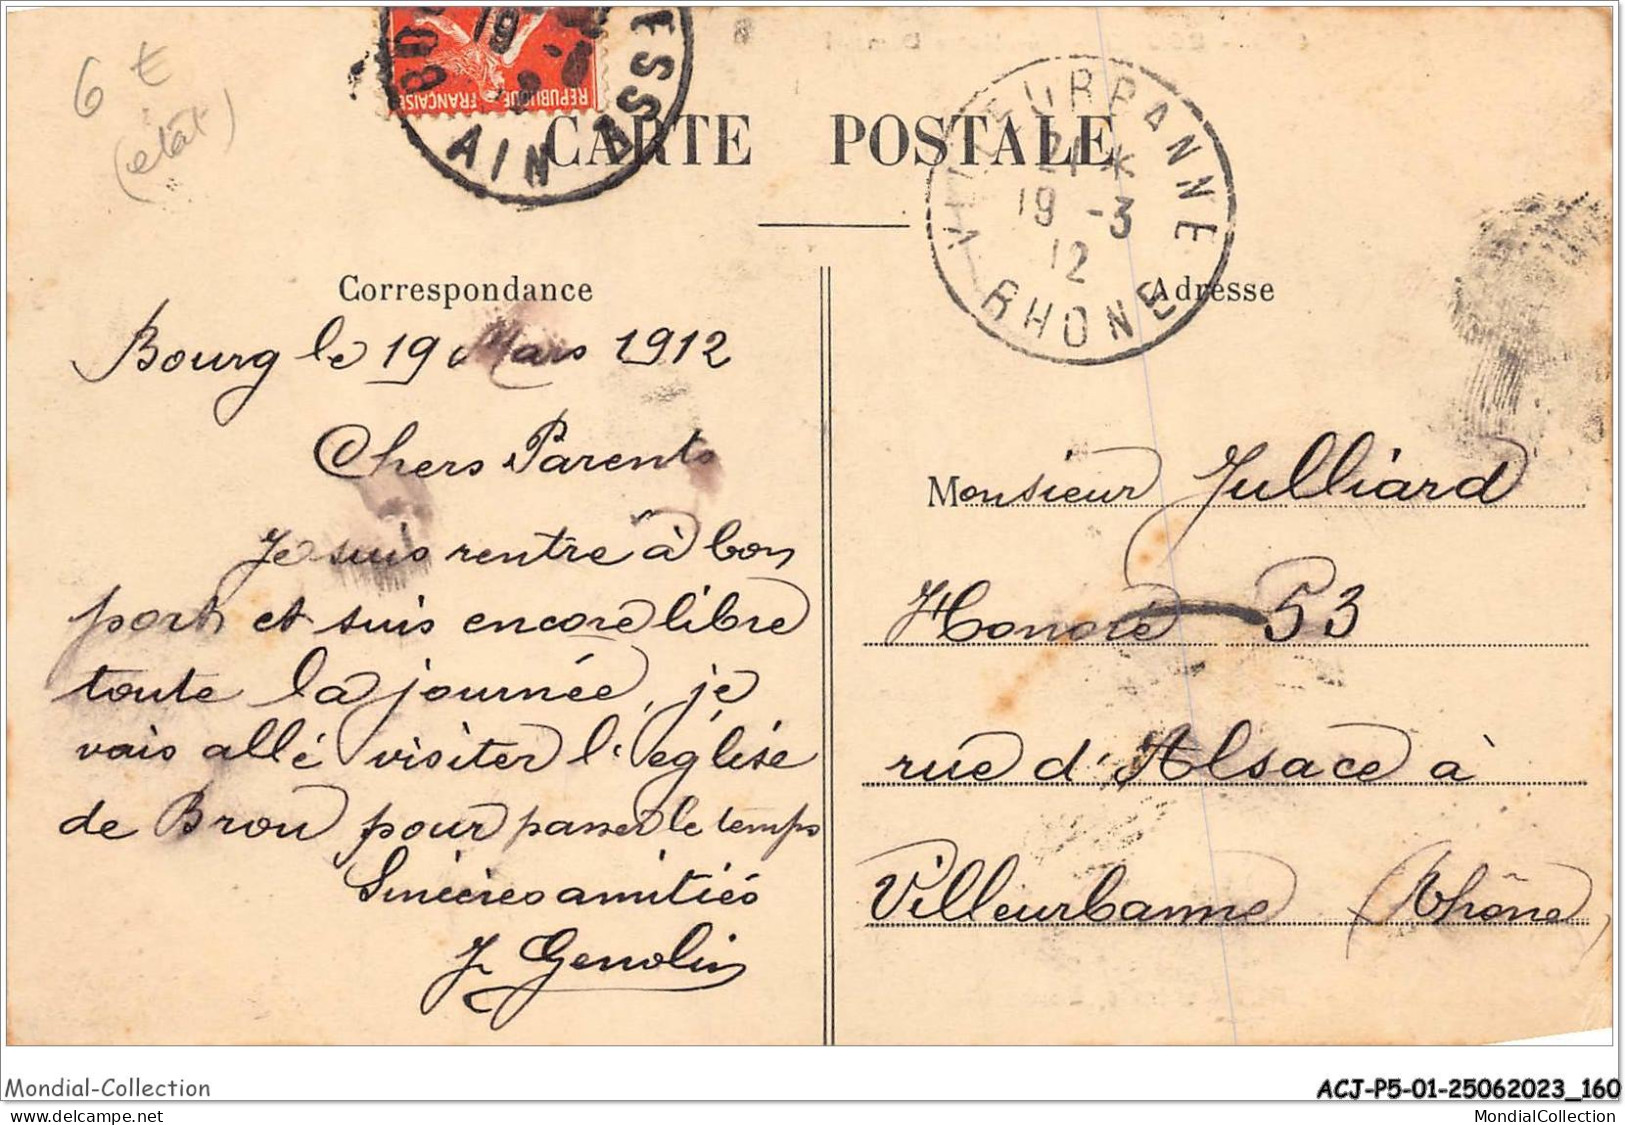 6 €
(état)
BOU
19
RÉPUBLIQUE FRANÇAISE
AIN
CARTE POSTALE
VILLEURBANNE
21 *
19 -3
12
RHONE
Correspondance
Bourg le 19 Mars 1912
Chers Parents
Je suis rentré à bon
port et suis encore libre
toute la journée, je
vais allé visiter l'église
de Brou pour passer le temps
Sincères amitiés
J. Genolin
Adresse
Monsieur Julliard
Honoré 53
rue d'Alsace à
Villeurbanne (Rhône)
Mondial-Collection
delcampe.net
ACJ-P5-01-25062023_160
MondialCollection